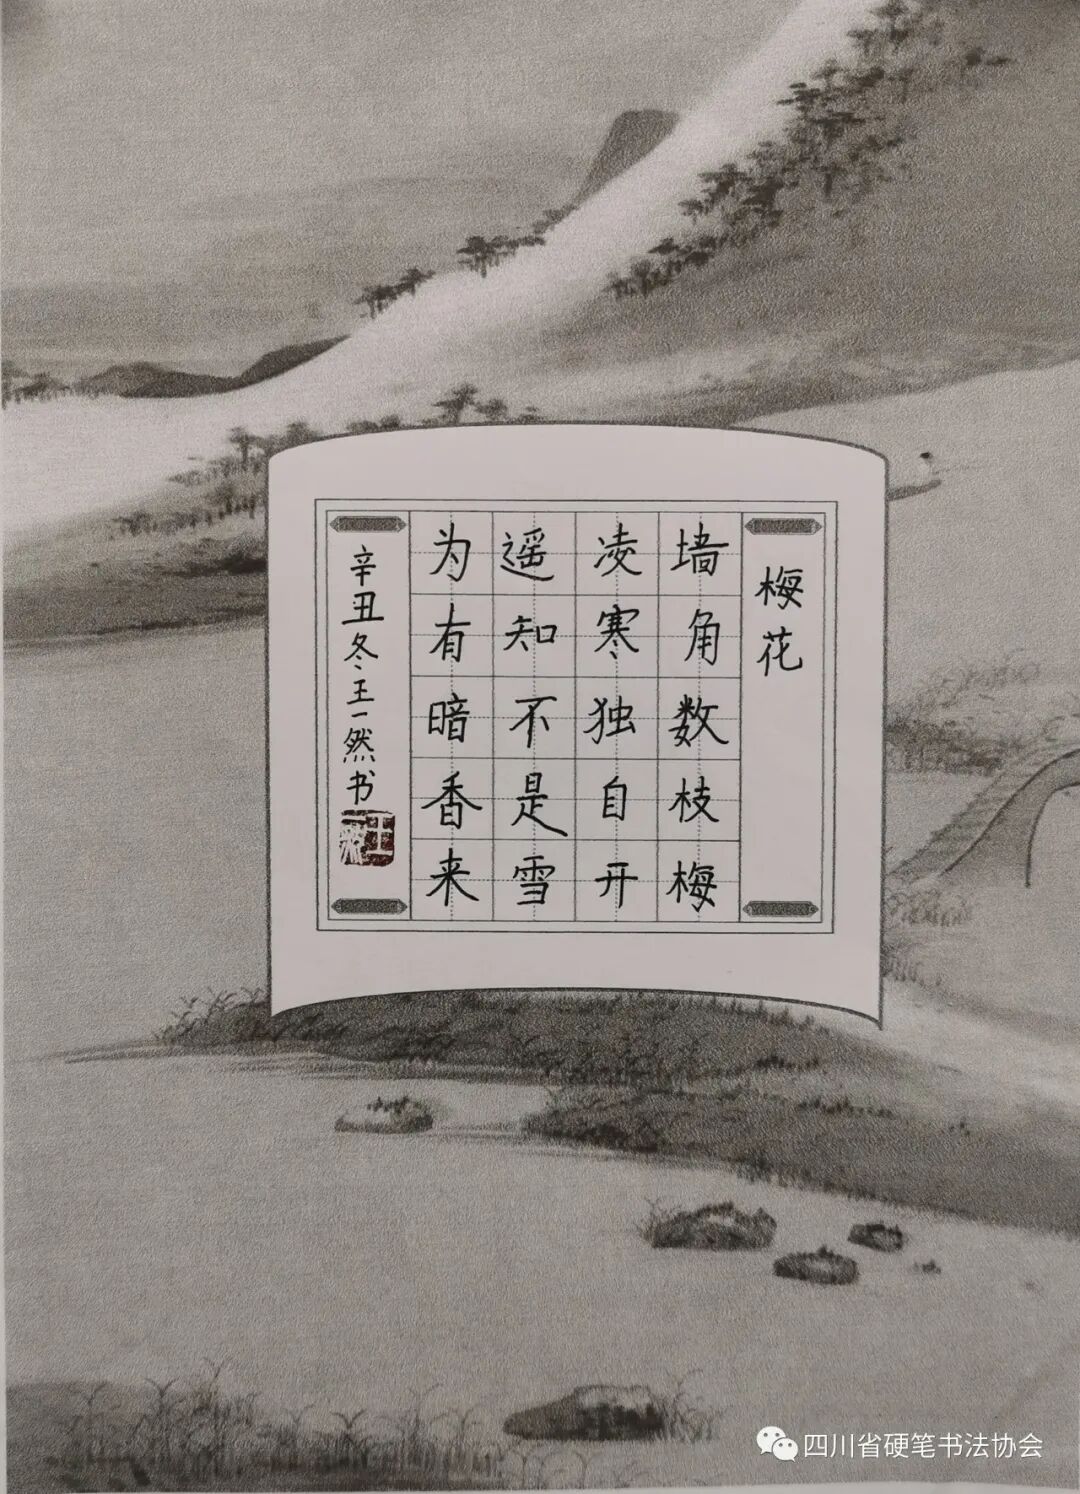 梅花
墙角数枝梅
凌寒独自开
遥知不是雪
为有暗香来
辛丑冬王一然书
王一然
四川省硬笔书法协会